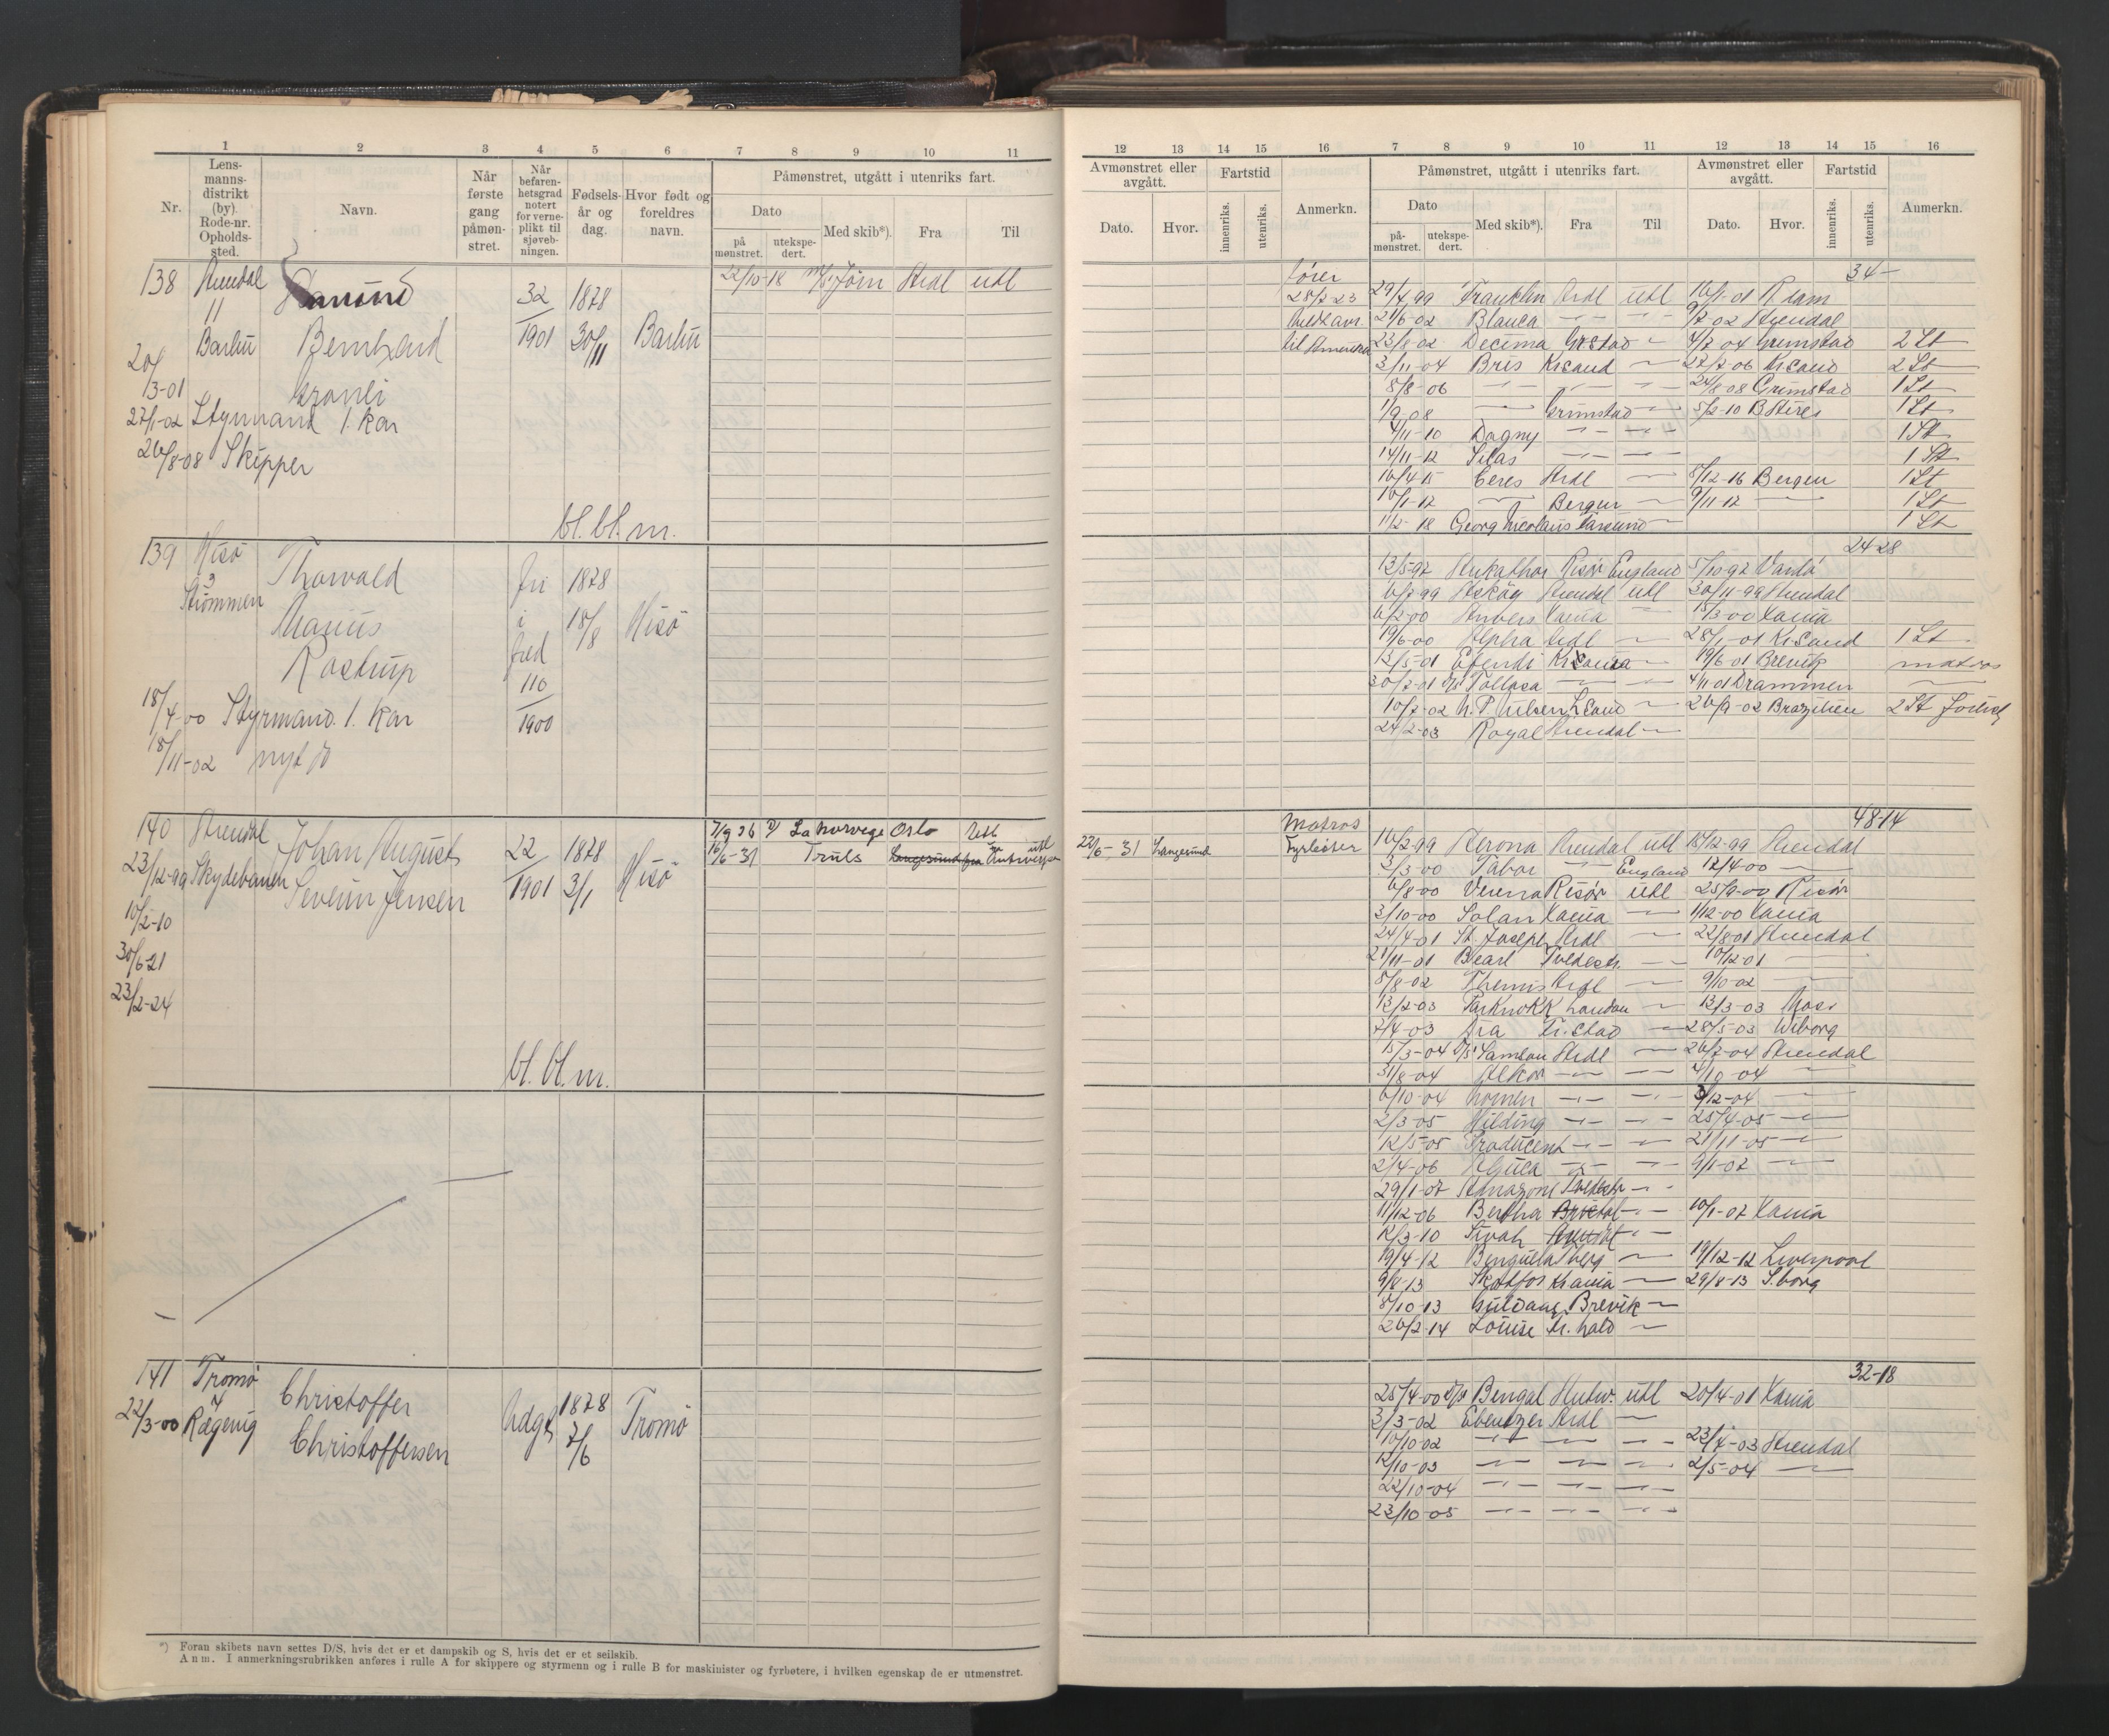 1 2 3 4 5 6 7 8 9 10 11
Nr.
Lens-
manns-
distrikt
(by).
Rode-nr.
Opholds-
sted.
Navn.
Når
første
gang
påmøn-
stret.
Når
befaren-
hetsgrad
notert
for verne-
plikt til
sjøveb-
ningen.
Fødsels-
år og
dag.
Hvor født og
foreldres
navn.
Påmønstret, utgått i utenriks fart.
Dato
på
mønstret.
utekspe-
dert.
Med skib*).
Fra
Til
138 Arendal
11
Barbu
Bernhard
32
1901
1878
30/11
Barbu
22/10-18 Jøin Ardl utl
20/3-01
27/1-02 Styrmand 1. kar
26/8-08 Skipper
bl. bl. m.
139 Hisö
3
Strömmen
Thorvald
Marius
Rostrup
fri
i
fred
110
1900
1878
18/8
Hisö
18/4-00 Styrmand 1. kar
18/11-02 nyt do
140 Arendal
Skydebanen
Johan August
Severin Jensen
22
1901
1878
3/1
Hisö
7/9 26 D/ La Norvege Oslo Utl
16/6-31 Truls Langesund fra Antwerpen utl
23/12-99
10/2-10
30/6 21
23/2-24
bl. bl. m.
141 Tromö
4
Rægevig
22/3-00
Christoffer
Christoffersen
Udygt
1878
7/6
Tromö
*) Foran skibets navn settes D/S, hvis det er et dampskib og S, hvis det er et seilskib.
Anm. I anmerkningsrubrikken anføres i rulle A for skippere og styrmenn og i rulle B for maskinister og fyrbøtere, i hvilken egenskap de er utmønstret.
12 13 14 15 16 7 8 9 10 11 12 13 14 15 16
Avmønstret eller
avgått.
Dato.
Hvor.
Fartstid
innenriks.
utenriks.
Anmerkn.
Påmønstret, utgått i utenriks fart.
Dato
på-
mønstret.
utekspe-
dert.
Med skib*).
Fra
Til
Avmønstret eller
avgått.
Dato.
Hvor.
Fartstid
innenriks.
utenriks.
Anmerkn.
fører
28/2-23
til Amerika
34-
29/4 99 Franklin Ardl utl 16/1-01 R.dam
21/6-02 Blanca 9/7-02 Arendal
23/8-02 Decima Grstad 4/7 04 Grimstad 2 St
3/11-04 Bris Krsand 27/7-06 Krsand 2 St
8/8-06 24/8-08 Grimstad 1 St
1/9-08 Grimstad 5/2-10 B Aires 1 St
4/11-10 Dagny 1 St
14/11-12 Silas 1 St
16/4-15 Ceres Ardl 8/12-16 Bergen 1 St
16/1-17 Bergen 9/11-17 1 St
11/2-18 Georg Nicolaus Farsund 1 St
24-28
13/5-97 Risör England 5/10-97 Vardö
6/7-99 Askög Arendal utl 30/11-99 Arendal
6/2-00 Anvers Xania 15/3-00 Xania
19/6-00 Alpha Ardl 28/1-01 Krsand 1 St
13/5-01 Efendi Krsand 19/6-01 Brevik matros
30/7-01 D/S Tollosa 4/11 01 Drammen
10/2-02 N. P. Nielsen L.sund 26/9-02 Brazilien 2 St
24/2-03 Royal Arendal
48-14
Matros
23/6-31 Langesund Fyrbøter
16/2-99 Verona Arendal utl 15/12-99 Arendal
3/3-00 Tabor England 12/4-00
6/8-00 Verena Risör utl 25/9-00 Risör
3/10-00 Solan Xania 1/12-00 Xania
24/4-01 St. Joseph Ardl 22/8-01 Arendal
21/11-01 Bearl Tvedestr. 10/12-01
8/8-02 Themis Ardl 9/10-02
13/2-03 London 13/3-03 Moss
7/4-03 Ara Fr.stad 28/5-03 Wiborg
15/3-04 D/S Samson Ardl 26/7-04 Arendal
31/8-04 Alkor 4/10-04
6/10-04 Nomen 3/12-04
2/3-05 Hilding 25/4-05
12/5-05 Producent 21/11-05
2/4-06 9/1-07
29/1-07 Amazone Tvedestr
11/12-06 Bertha Bristol 10/1-07 Xania
12/3-10 Sirah Arendal
19/4-12 Benguela Tberg 19/12-12 Liverpool
9/8-13 Skotfos Xania 29/8-13 S.borg
8/10 13 Guldaas Brevik
26/2-14 Louise Fr. hald
32-18
25/4-00 D/S Bengal Antw. utl 20/4-01 Xania
3/3-02 Ebenezer Ardl
10/10-02 23/7-03 Arendal
12/10-03 2/5-04
22/10-04
23/10-05